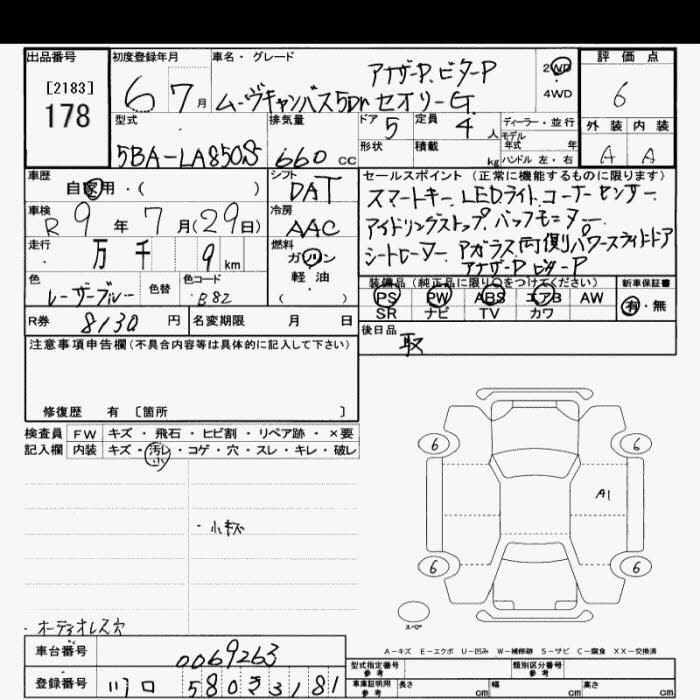 出品番号 初度登録年月 車名・グレード 評価点
[2183]
178
6 7月
アナザーP. ビターP
ムーヴキャンバス5Dr セオリーG
2WD
4WD
6
型式 排気量 ドア 5 定員 4人 ディーラー・並行
モデル年式 年
外装 内装
5BA-LA850S 660 cc 形状 積載 kg ハンドル 左・右 A A
車歴 シフト セールスポイント (正常に機能するものに限ります)
自家用・( ) DAT
スマートキー. LEDライト. コーナーセンサー.
車検 冷房
R9年7月(29日) AAC
アイドリングストップ. バックモニター.
走行 燃料
万 千 9 km ガソリン
シートヒーター. 両側パワースライドドア
軽油
アナザーP ビターP
色 色替 色コード ( )
レーザーブルー B82
装備品 (純正品に限り○をつけてください) 新車保証書
PS PW ABS エアB AW 有・無
SR ナビ TV カワ
R券 8130円 名変期限 月 日
後日品
取
注意事項申告欄(不具合内容等は具体的に記入して下さい)
修復歴 有 [箇所 ]
検査員 FW キズ・飛石・ヒビ割・リペア跡・×要
記入欄 内装 キズ・汚レ・コゲ・穴・スレ・キレ・破レ
小
6 6
A1
・小キズ
6 6
スペア
・オーディオレス穴
A-キズ E-エクボ U-凹み W-補修跡 S-サビ C-腐食 XX-交換済
車台番号 0069263
型式指定番号 参考 類別区分番号 参考
登録番号 川口 580 さ 3181
車庫証明用 参考 長さ cm 幅 cm 高さ cm